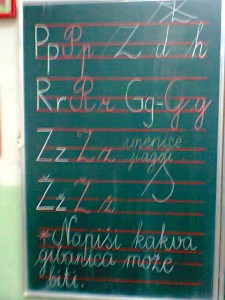 Ž
Pp Pp Z d h
Rr Rr Gg-Gg
Zz Zz imenice
Žž Žž
*Napiši kakva
gibanica može
biti.